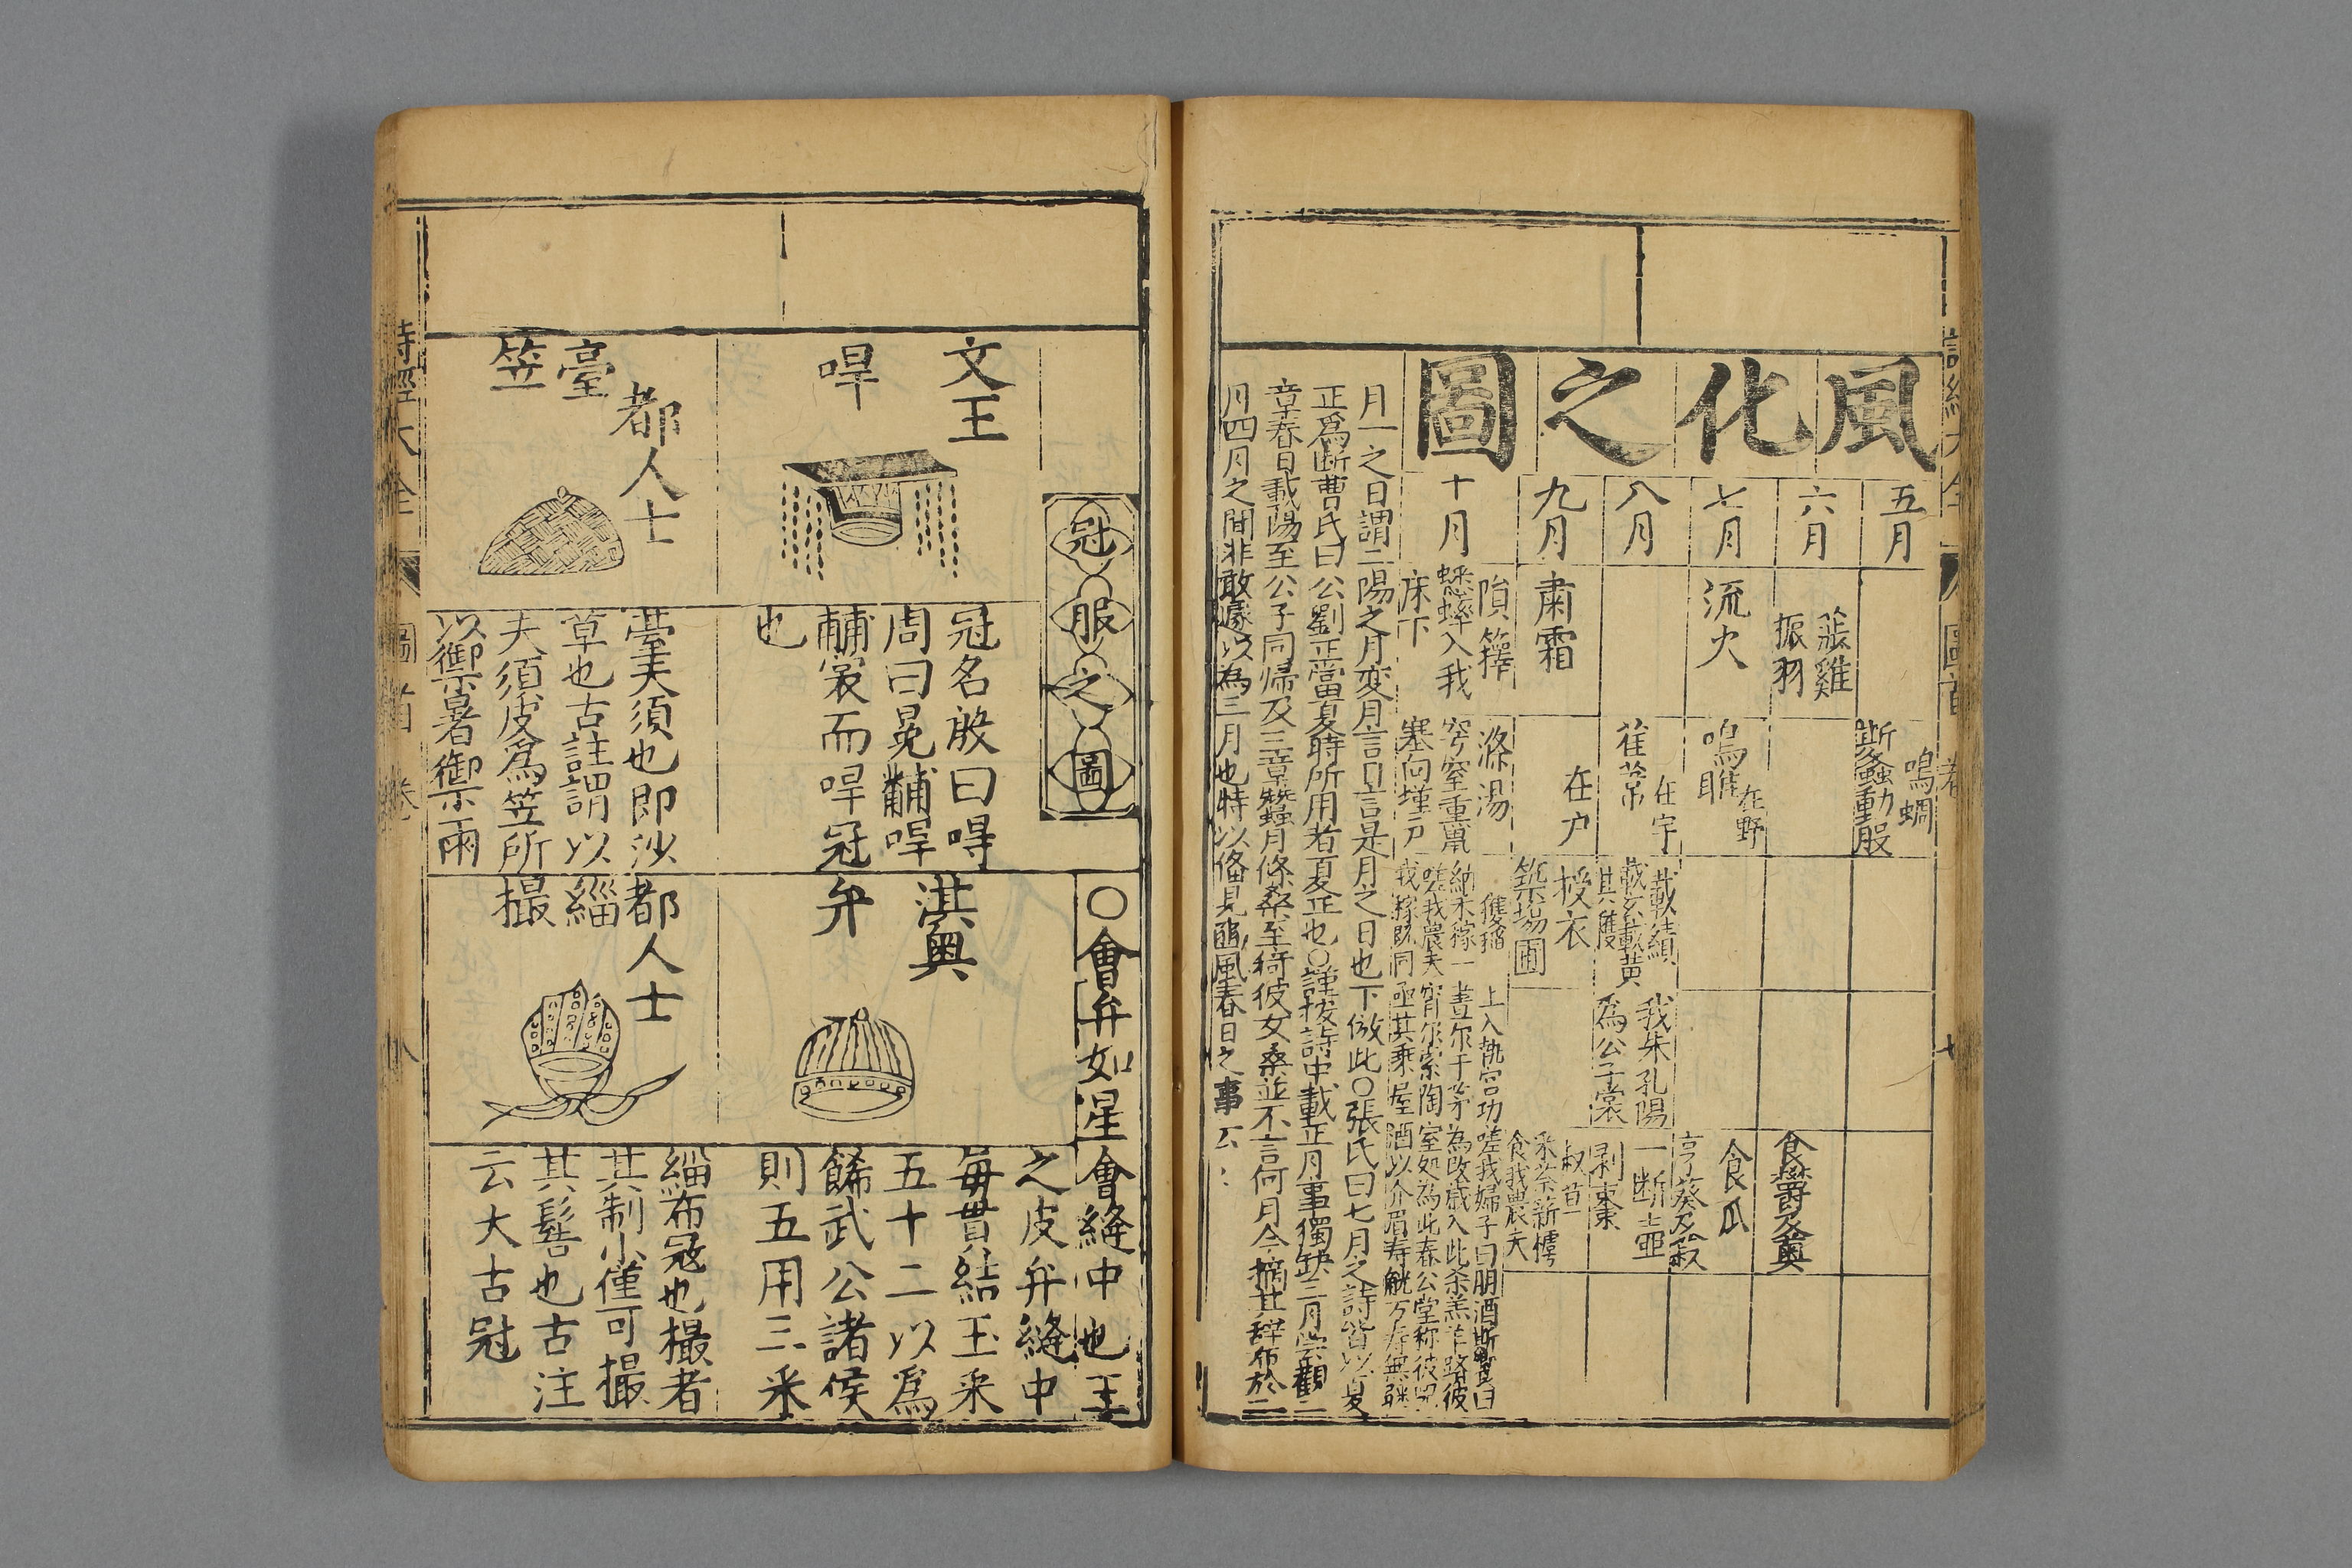 風化之圖
五月
鳴蜩
斯螽動股
六月
莎雞
振羽
食鬱及薁
七月
流火
鳴鵙
在野
食瓜
亨葵及菽
八月
在宇
萑葦
載績
載玄載黃
其穫
我朱孔陽
為公子裳
一断壺
剥棗
九月
肅霜
在户
授衣
築場圃
叔苴
采荼薪樗
食我農夫
十月
隕籜
蟋蟀入我
床下
滌湯
穹窒重熏
塞向墐户
穫稻
納禾稼一
嗟我農夫
我稼既同
上入執宮功
晝尔于茅
宵尔索陶
亟其乘屋
嗟我婦子曰
為改歲入此
室処為此春
酒以介眉寿
月一之日謂二陽之月变月言日言是月之日也下倣此〇張氏曰七月之詩皆以夏
正爲断曹氏曰公劉正當夏時所用者夏正也〇謹按詩中載正月事獨缺三月嘗觀二
章春日載陽至公子同帰及三章蠶月條桑至猗彼女桑並不言何月今摘其辞布於二
月四月之間非敢遽以為三月也特以俻見豳風春日之事云
冠服之圖
文王
冔
冠名殷曰冔
周曰冕黼冔
黼裳而冔冠
也
都人士
臺
笠
臺夫須也即沙
草也古註謂以
夫須皮爲笠所
以禦暑禦雨
〇會弁如星會縫中也王
淇奧
弁
之皮弁縫中
每貫結玉采
五十二以爲
餙武公諸侯
則五用三采
都人士
緇
撮
緇布冠也撮者
其制小僅可撮
其髻也古注
云大古冠